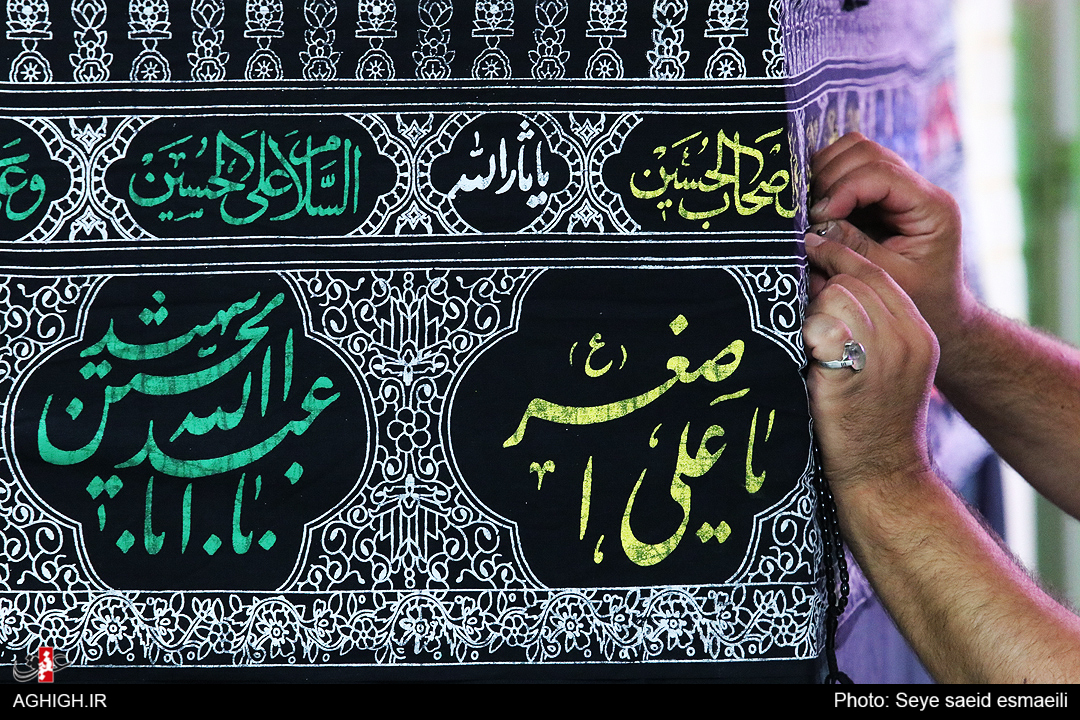 اصحاب الحسین
یا ثارالله
السلام علی الحسین
وع
یا علی اصغر (ع)
یا ابا عبدالله الحسین شهید
AGHIGH.IR
Photo: Seye saeid esmaeili